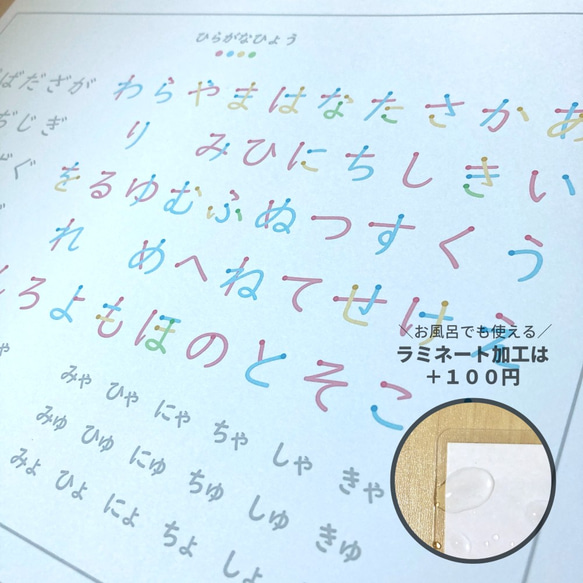 ひらがなひょう
ばださが わらやまはなたさかあ
じぎ り みひにちしきい
ぐ をるゆむふぬつすくう
れ めへねてせけえ
ろよもほのとそこ
みゃ ひゃ にゃ ちゃ しゃ きゃ
みゅ ひゅ にゅ ちゅ しゅ きゅ
みょ ひょ にょ ちょ しょ
＼お風呂でも使える／
ラミネート加工は
＋１００円